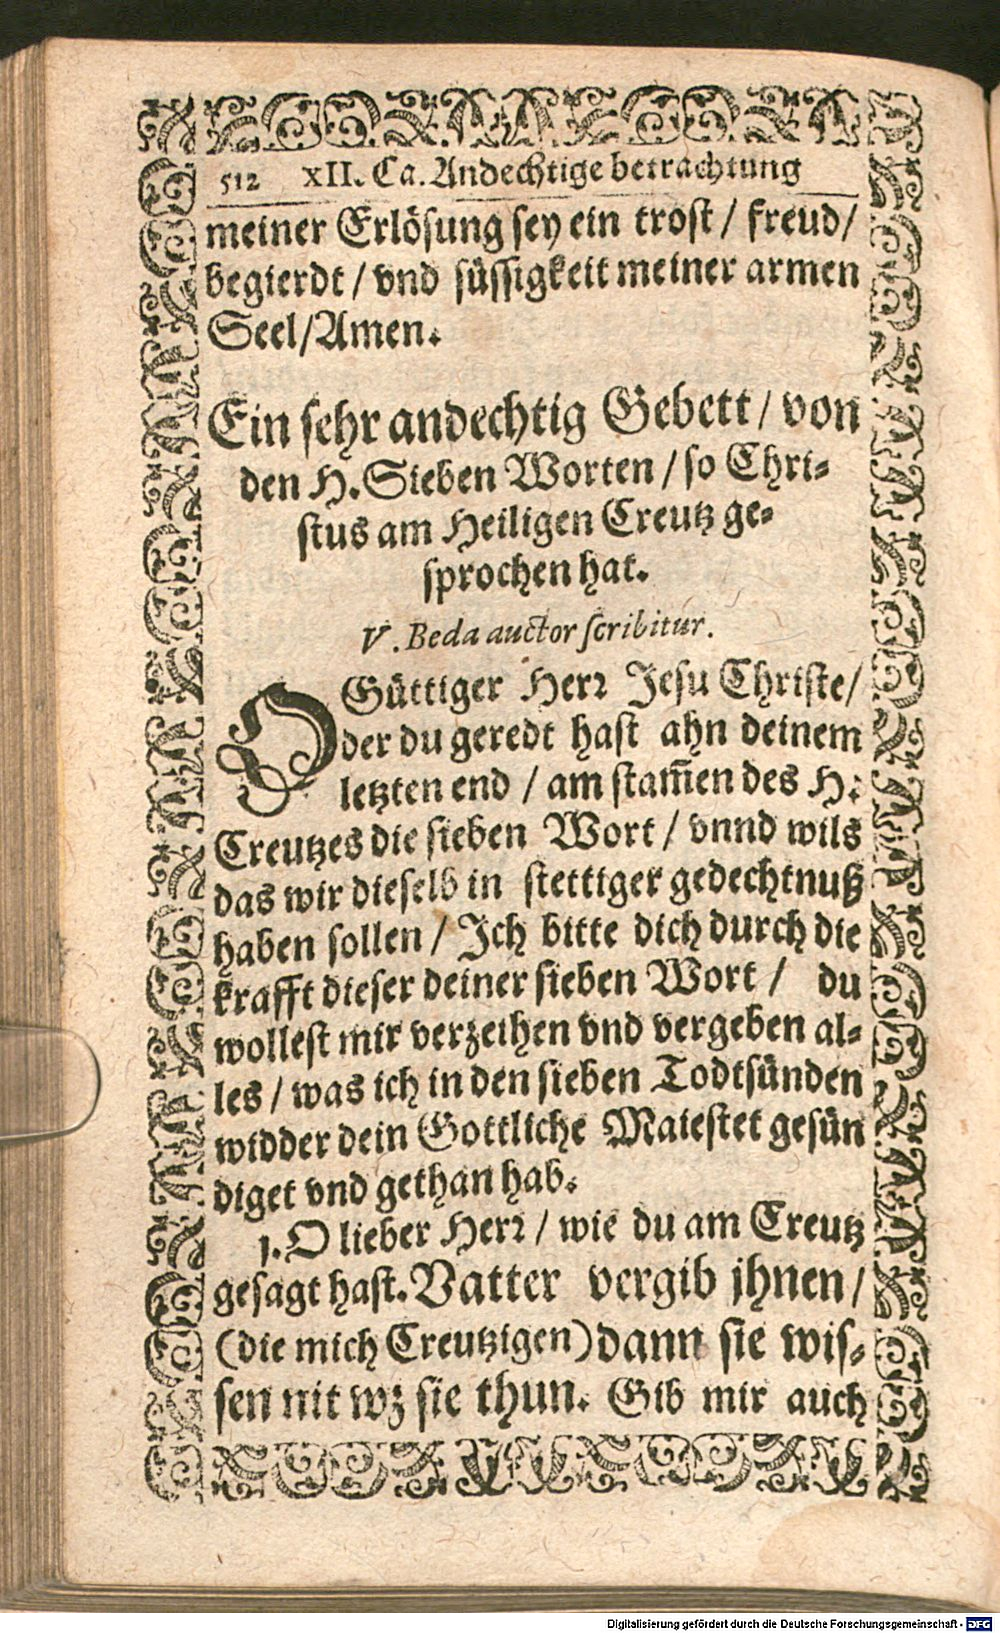 512 XII. Ca. Andechtige betrachtung
meiner Erlösung sey ein trost / freud /
begierdt / vnd süssigkeit meiner armen
Seel / Amen.
Ein sehr andechtig Gebett / von
den H. Sieben Worten / so Chri-
stus am Heiligen Creutz ge-
sprochen hat.
V. Beda auctor scribitur.
O Güttiger Herr Jesu Christe /
der du geredt hast ahn deinem
letzten end / am stam̃en des H.
Creutzes die sieben Wort / vnnd wils
das wir dieselb in stettiger gedechtnuß
haben sollen / Ich bitte dich durch die
krafft dieser deiner sieben Wort / du
wollest mir verzeihen vnd vergeben al-
les / was ich in den sieben Todtsünden
widder dein Gottliche Maiestet gesün
diget vnd gethan hab.
1. O lieber Herr / wie du am Creutz
gesagt hast. Vatter vergib jhnen /
(die mich Creutzigen) dann sie wis-
sen nit wz sie thun. Gib mir auch
Digitalisierung gefördert durch die Deutsche Forschungsgemeinschaft - DFG